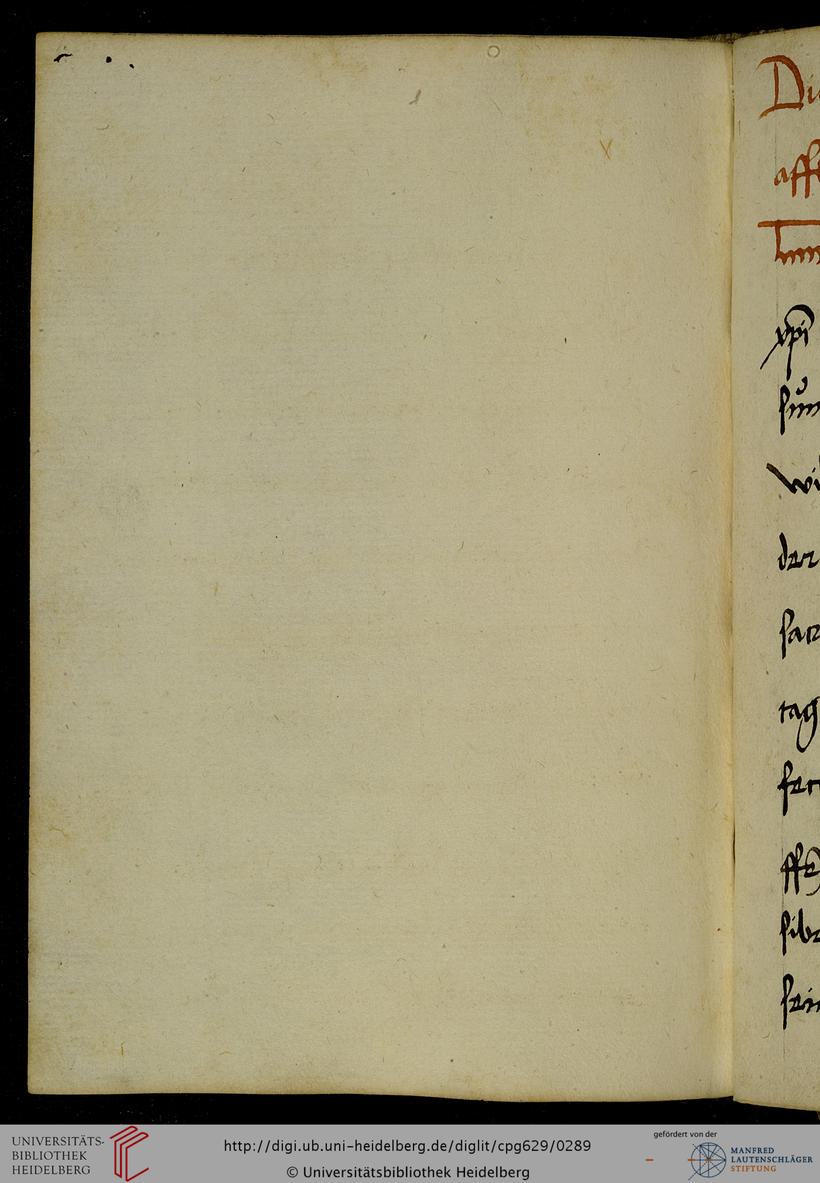 Di
aff
xpi
sun
wi
der
sacr
tag
ffe
sibe
sein
UNIVERSITÄTS-
BIBLIOTHEK
HEIDELBERG
http://digi.ub.uni-heidelberg.de/diglit/cpg629/0289
© Universitätsbibliothek Heidelberg
gefördert von der
MANFRED
LAUTENSCHLÄGER
STIFTUNG